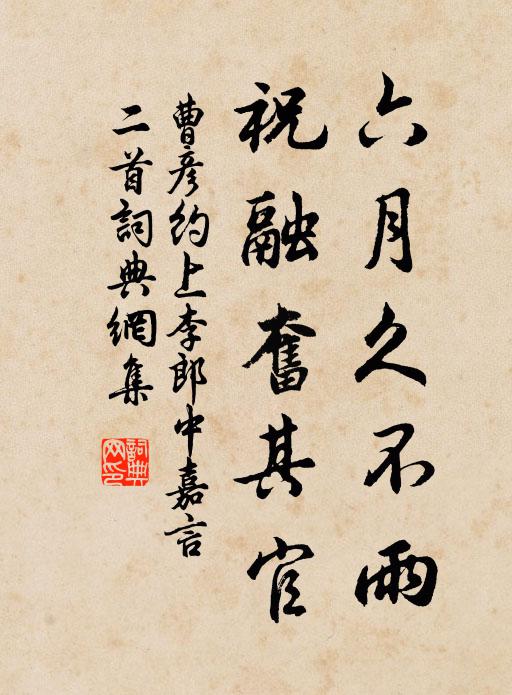 六月久不雨
祝融奮其官
曹彥約上李郎中嘉言
二首詞典網集
詞典
网印